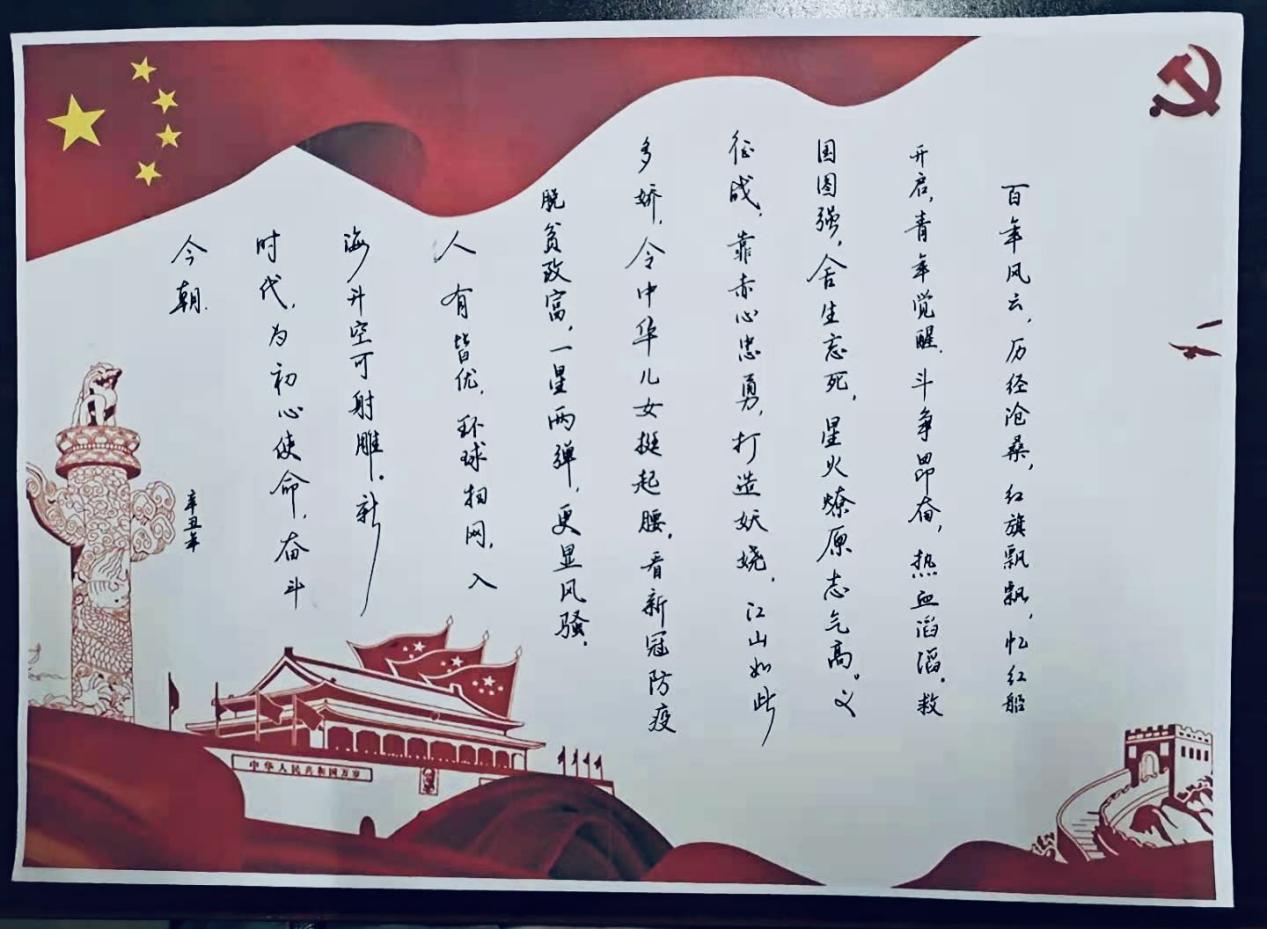 百年风云，历经沧桑，红旗飘飘，忆红船
开启，青年觉醒，斗争昂奋，热血滔滔。救
国图强，舍生忘死，星火燎原志气高。义
征战，靠赤心忠勇，打造妖娆，江山如此
多娇，令中华儿女挺起腰，看新冠防疫
脱贫致富，一星两弹，更显风骚。
人有皆优，环球扫网，入
海升空可射雕。新
时代，为初心使命，奋斗
今朝.
辛丑年
中华人民共和国万岁